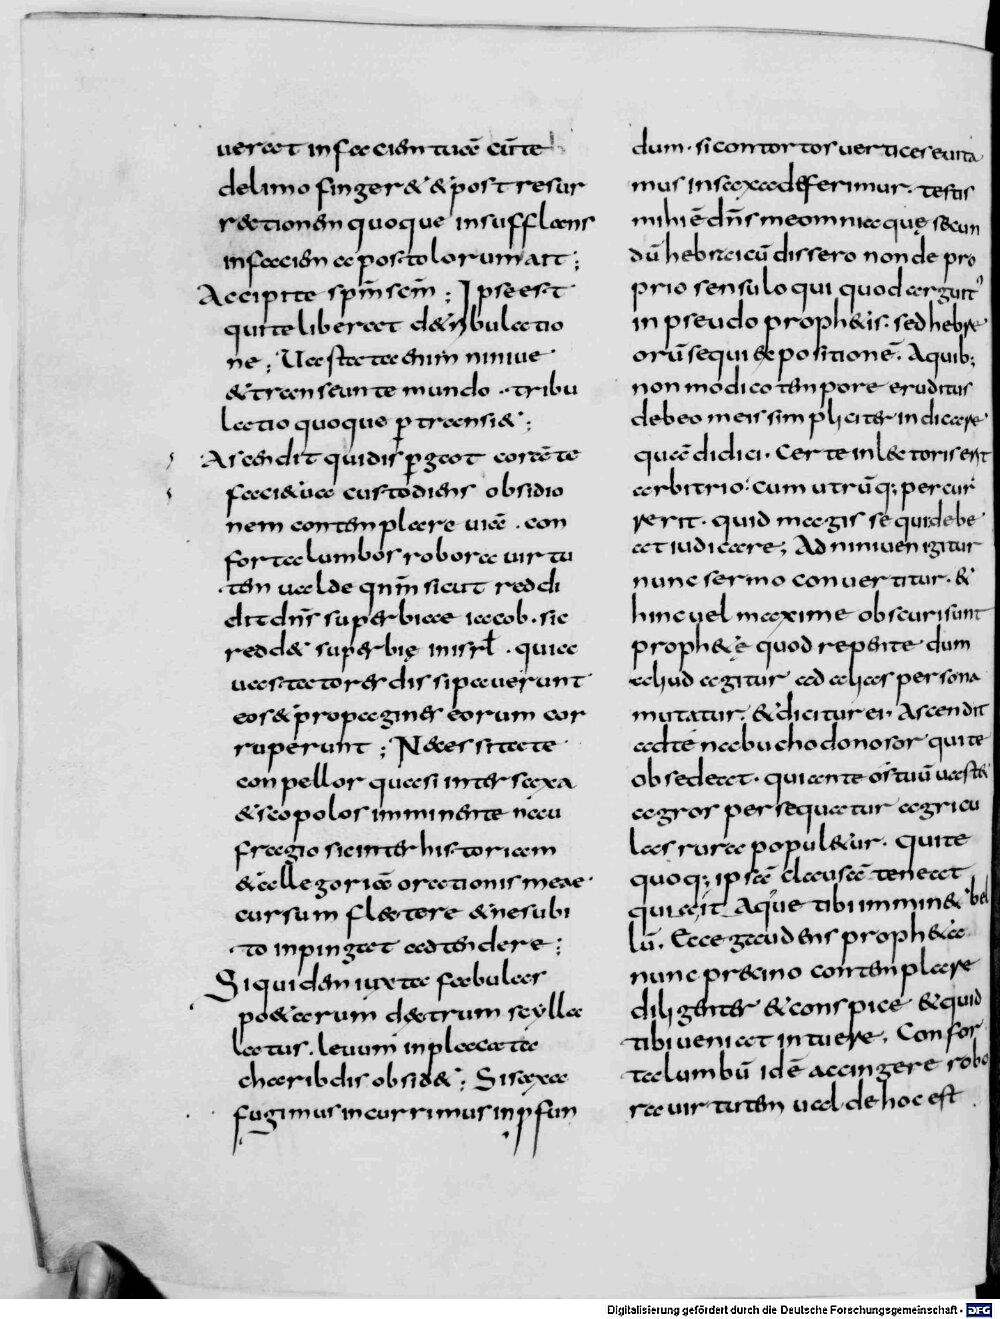 uerat in faciem tuā cū te
de limo fingeret & post resur
rectionem quoque insufflans
in faciem apostolorum ait;
Accipite spm̄ scm̄; Ipse est
qui te liberat de tribulatio
ne; Uastata enim niniue
& transeunte mundo · tribu
latio quoque ꝑtransiet;
Ascendit qui disꝑgat corā te
facie tua custodiens obsidio
nem contemplare uiā · con
forta lumbos robora uirtu
tem ualde qnm̄ sicut reddi
dit dns̄ superbiae iacob · sic
reddet superbię in isrl̄ · quia
uastatores dissipauerunt
eos & propagines eorum cor
ruperunt; Necessitate
conpellor quasi inter saxa
& scopolos imminente nau
fragio sic inter historiam
& allegoriā orationis meae
cursum flectere & ne subi
to inpingat adtendere;
Siquidem iuxta fabulas
poetarum dextrum scylla
latus. leuum inplacata
charibdis obsidet; Si saxa
fugimus incurrimus in ꝓfun
dum · si contortos uertices euita
mus in saxa deferimur. testis
mihi ē dns̄ me omnia quę secun
dū hebraicū dissero non de pro
prio sensu loqui quod arguitur
in pseudo prophetis. sed hebre
orū sequi expositionē. A quib;
non modico tempore eruditus
debeo meis simpliciter indicare
quae didici. Certe in lectoris erit
arbitrio. cum utrūq; percur
rerit. quid magis sequi debe
at iudicare; Ad niniuen igitur
nunc sermo conuertitur. &
hinc uel maxime obscuri sunt
prophetę quod repente dum
aliud agitur ad alias persona
mutatur. & dicitur ei. Ascendit
ad te nabuchodonosor qui te
obsedeat · qui ante ostiū uastet
agros persequatur agricu
las rura populetur. Qui te
quoq; ipsā clausā teneat
qui ait Atque tibi imminet bel
lū. Ecce gaudens propheta
nunc praecino contemplare
diligenter & conspice & quid
tibi ueniat intuere. Confor
ta lumbū idē accingere robo
ra uirtutem ualde hoc est
Digitalisierung gefördert durch die Deutsche Forschungsgemeinschaft · DFG